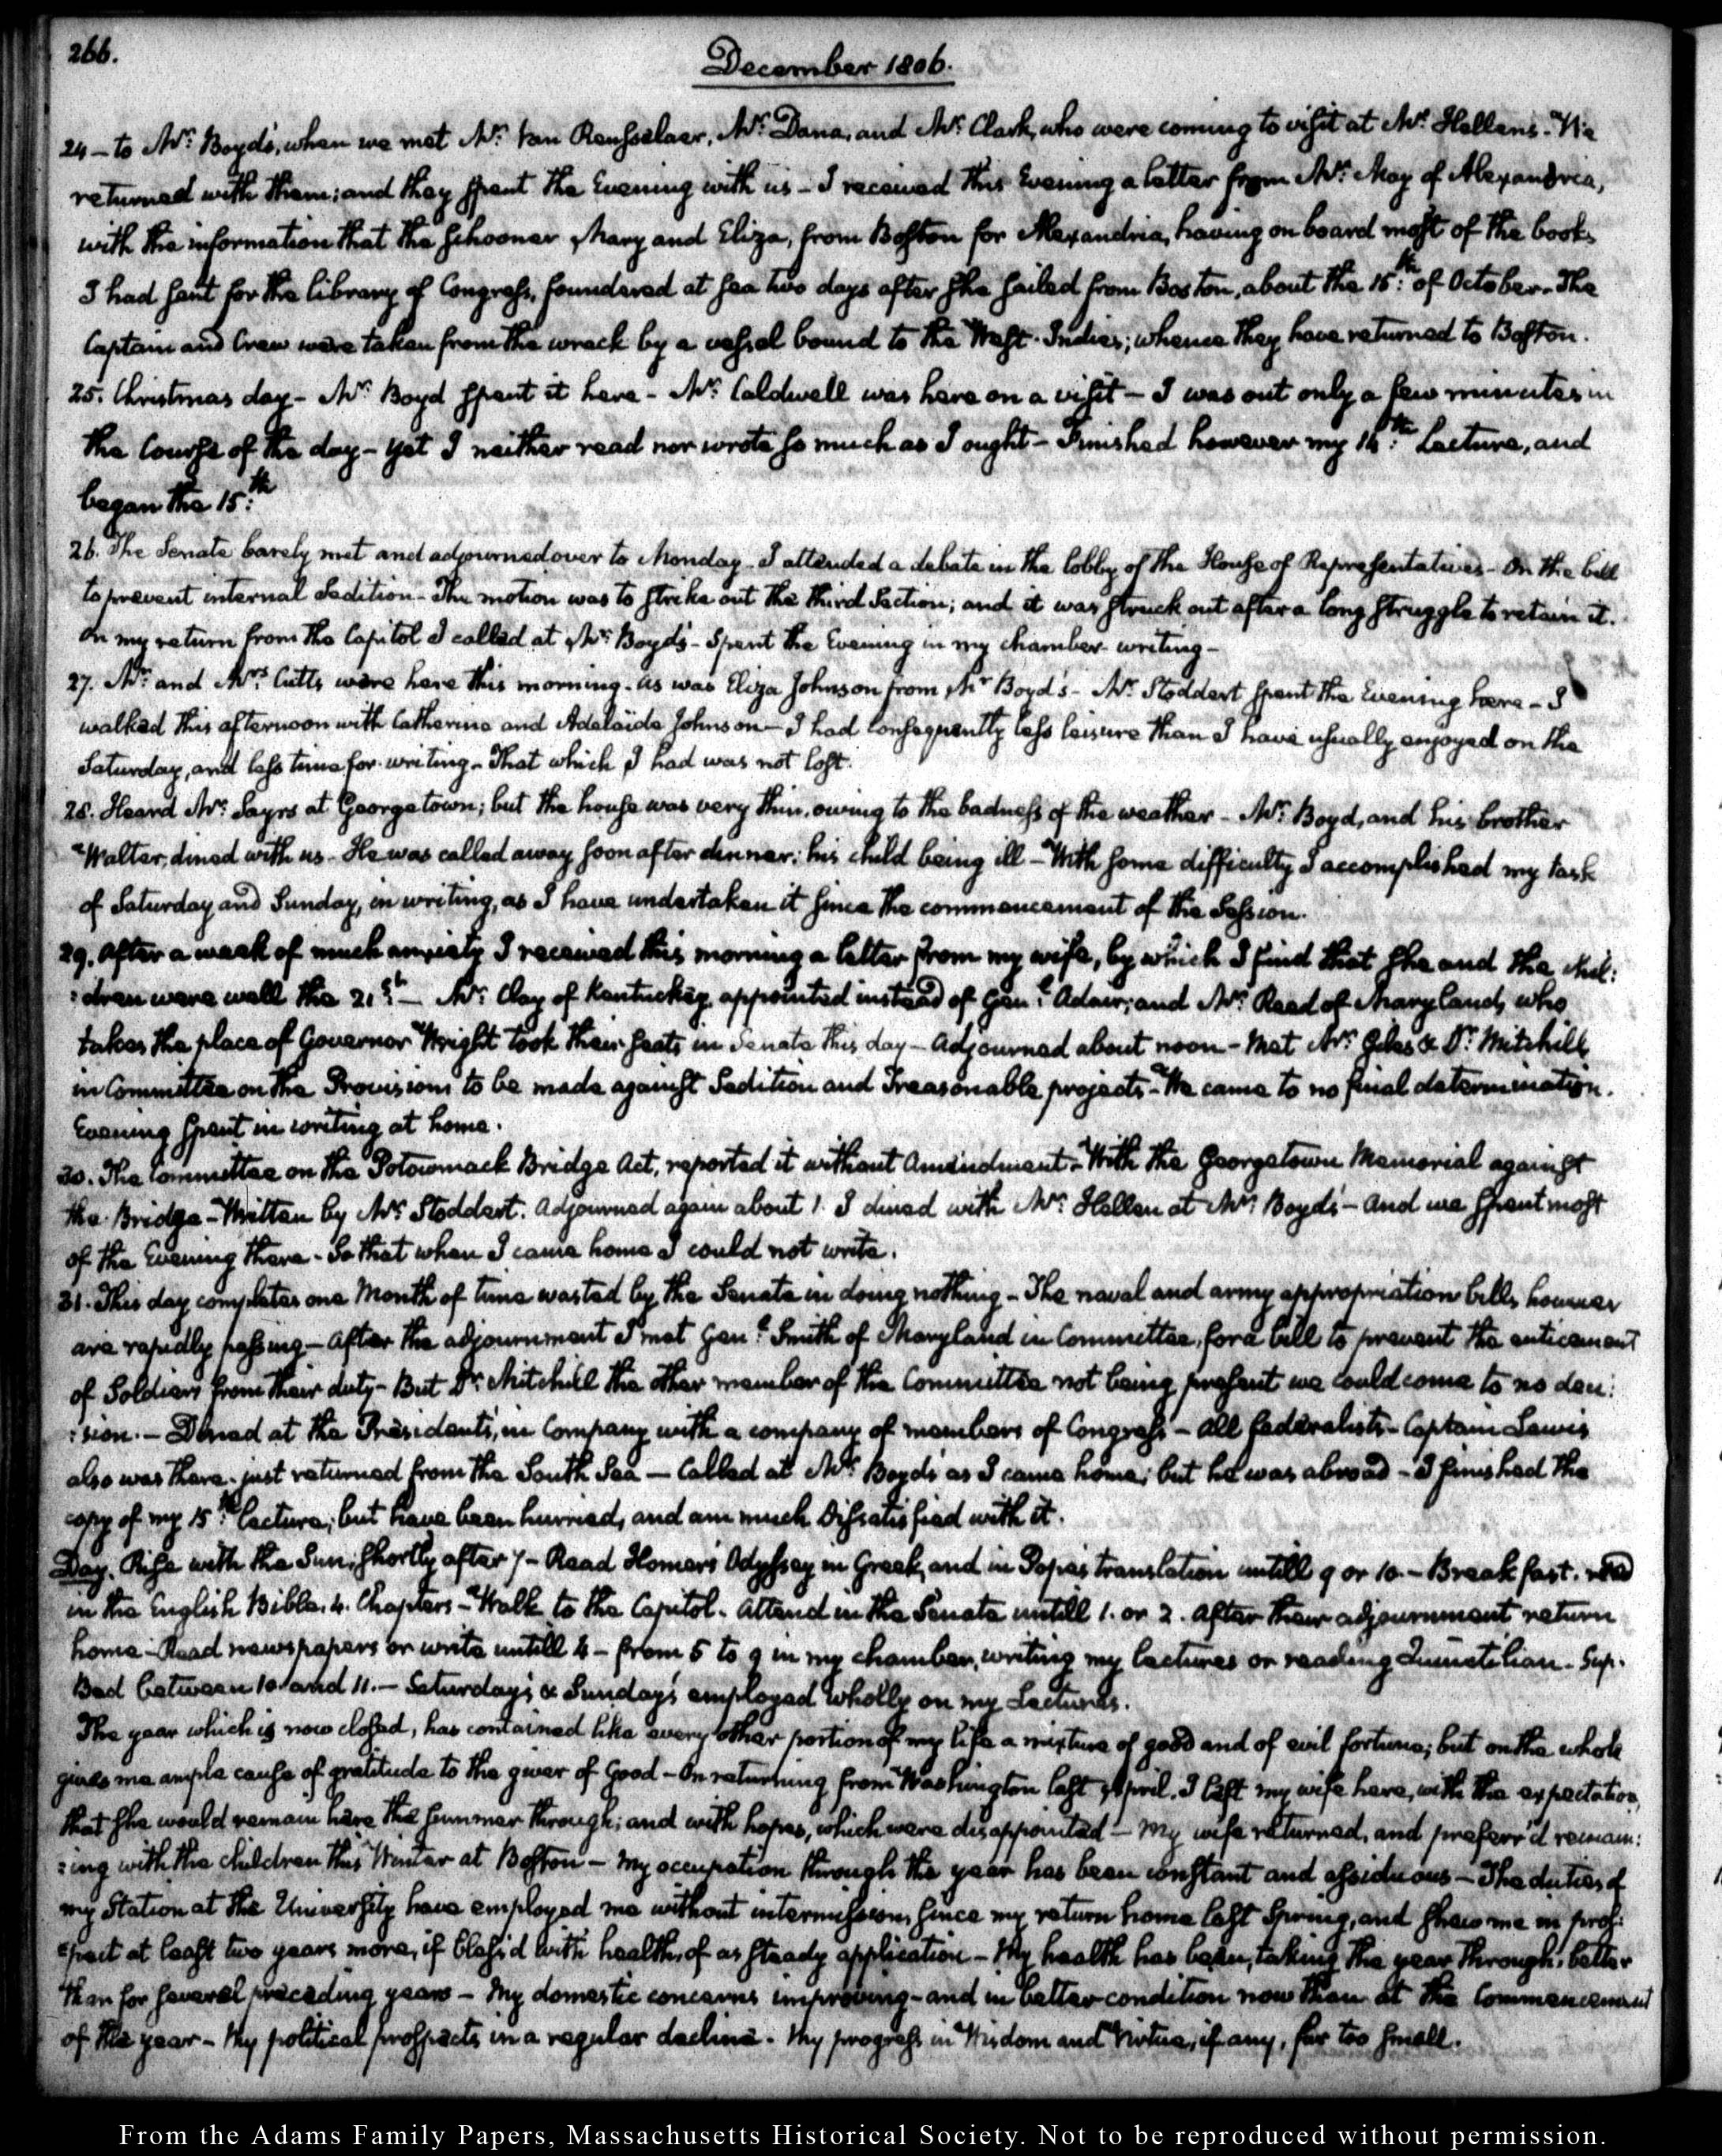 266.
December 1806.
24 - to Mr. Boyd's, when we met Mr. Van Rensselaer, Mr. Dana, and Mr. Clark, who were coming to visit at Mr. Hellens. We
returned with them; and they spent the Evening with us - I received this Evening a letter from Mr. May of Alexandria,
with the information that the Schooner Mary and Eliza, from Boston for Alexandria, having on board most of the books
I had sent for the library of Congress, foundered at sea two days after she sailed from Boston, about the 15th: of October. The
Captain and Crew were taken from the wreck by a vessel bound to the West-Indies; whence they have returned to Boston.
25. Christmas day - Mr. Boyd spent it here - Mr. Caldwell was here on a visit - I was out only a few minutes in
the Course of the day - yet I neither read nor wrote so much as I ought - Finished however my 14th: Lecture, and
began the 15th:
26. The Senate barely met and adjourned over to Monday - I attended a debate in the lobby of the House of Representatives - On the bill
to prevent internal Sedition - The motion was to strike out the third Section; and it was struck out after a long struggle to retain it.
On my return from the Capitol I called at Mr. Boyd's - Spent the Evening in my chamber - writing -
27. Mr. and Mrs. Cutts were here this morning - as was Eliza Johnson from Mr. Boyd's - Mr. Stoddert spent the Evening here - I
walked this afternoon with Catherine and Adelaide Johnson - I had consequently less leisure than I have usually enjoyed on the
Saturday, and less time for writing - That which I had was not lost.
28. Heard Mr. Sayrs at Georgetown; but the house was very thin, owing to the badness of the weather - Mr. Boyd, and his brother
Walter, dined with us - He was called away soon after dinner; his child being ill - With some difficulty I accomplished my task
of Saturday and Sunday, in writing, as I have undertaken it since the commencement of the Session.
29. After a week of much anxiety I received this morning a letter from my wife, by which I find that she and the chil:
:dren were well the 21st - Mr. Clay of Kentuckey, appointed instead of Genl. Adair; and Mr. Reed of Maryland, who
takes the place of Governor Wright took their seats in Senate this day - Adjourned about noon - Met Mr. Giles & Dr. Mitchill
in Committee on the Provisions to be made against Sedition and Treasonable projects - We came to no final determination.
Evening spent in writing at home.
30. The Committee on the Potowmack Bridge Act, reported it without Amendment - With the Georgetown Memorial against
the Bridge - Written by Mr. Stoddert. Adjourned again about 1. I dined with Mr. Hellen at Mr. Boyd's - And we spent most
of the Evening there - So that when I came home I could not write.
31. This day completes one Month of time wasted by the Senate in doing nothing - The naval and army appropriation bills however
are rapidly passing - After the adjournment I met Genl. Smith of Maryland in Committee, for a bill to prevent the enticement
of Soldiers from their duty - But Dr. Mitchill the other member of the Committee not being present we could come to no deci:
:sion. - Dined at the President's, in Company with a company of members of Congress - All federalists - Captain Lewis
also was there - just returned from the South Sea - Called at Mr. Boyd's as I came home; but he was abroad - I finished the
copy of my 15th: lecture; but have been hurried, and am much dissatisfied with it.
Day. Rise with the Sun, shortly after 7 - Read Homer's Odyssey in Greek, and in Pope's translation untill 9 or 10. - Breakfast. read
in the English Bible. 4. Chapters - Walk to the Capitol. Attend in the Senate untill 1. or 2. After their adjournment return
home - Read newspapers or write untill 4 - from 5 to 9 in my chamber, writing my lectures or reading Quinctilian - Sup.
Bed between 10 and 11. - Saturday's & Sunday's employed wholly on my Lectures.
The year which is now closed, has contained like every other portion of my life a mixture of good and of evil fortune; but on the whole
gives me ample cause of gratitude to the giver of Good - On returning from Washington last April. I left my wife here, with the expectation,
that she would remain here the summer through; and with hopes, which were disappointed - My wife returned, and preferr'd remain:
:ing with the children this Winter at Boston - My occupation through the year has been constant and assiduous - The duties of
my Station at the University have employed me without intermission, since my return home last Spring, and shew me in pros:
:pect at least two years more, if bless'd with health, of as steady application - My health has been, taking the year through, better
than for several preceding years - My domestic concerns improving - and in better condition now than at the Commencement
of the year - My political prospects in a regular decline. My progress in Wisdom and Virtue, if any, far too small.
From the Adams Family Papers, Massachusetts Historical Society. Not to be reproduced without permission.